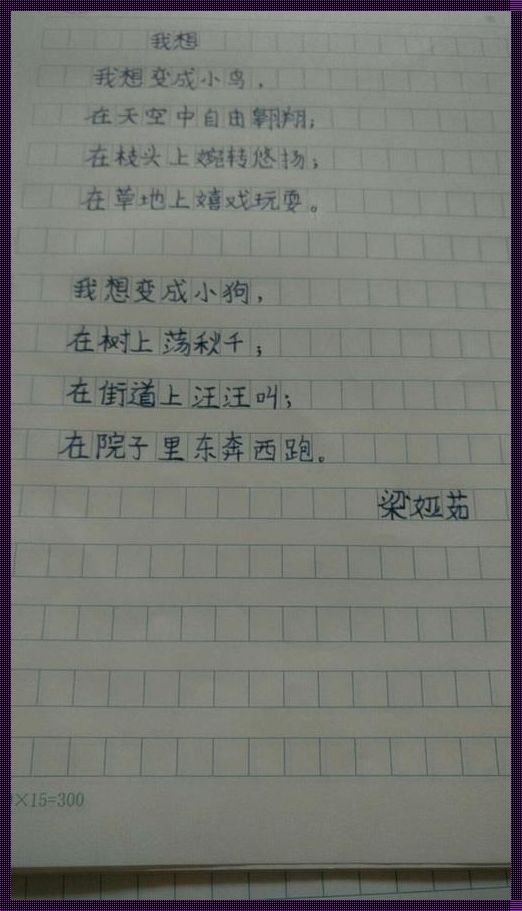 我想
我想变成小鸟，
在天空中自由翱翔；
在枝头上婉转悠扬；
在草地上嬉戏玩耍。
我想变成小狗，
在树上荡秋千；
在街道上汪汪叫；
在院子里东奔西跑。
梁娅茹
×15=300